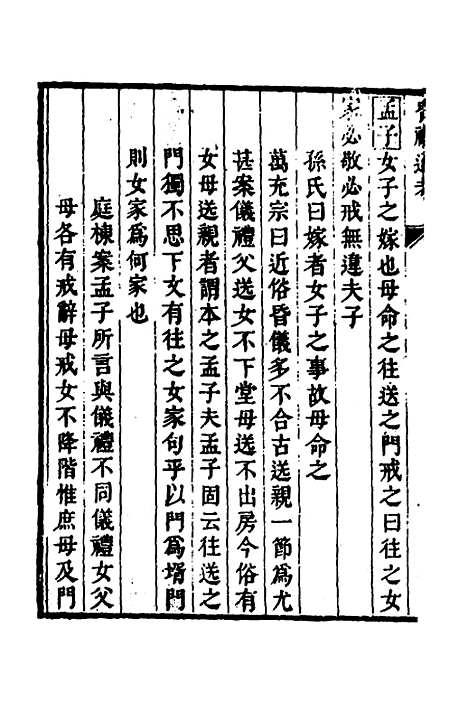 昏禮通考
孟子女子之嫁也母命之往送之門戒之曰往之女
家必敬必戒無違夫子
孫氏曰嫁者女子之事故母命之
萬充宗曰近俗昏儀多不合古送親一節爲尤
甚案儀禮父送女不下堂母送不出房今俗有
女母送親者謂本之孟子夫孟子固云往送之
門獨不思下文有往之女家句乎以門爲壻門
則女家爲何家也
庭棟案孟子所言與儀禮不同儀禮女父
母各有戒辭母戒女不降階惟庶母及門